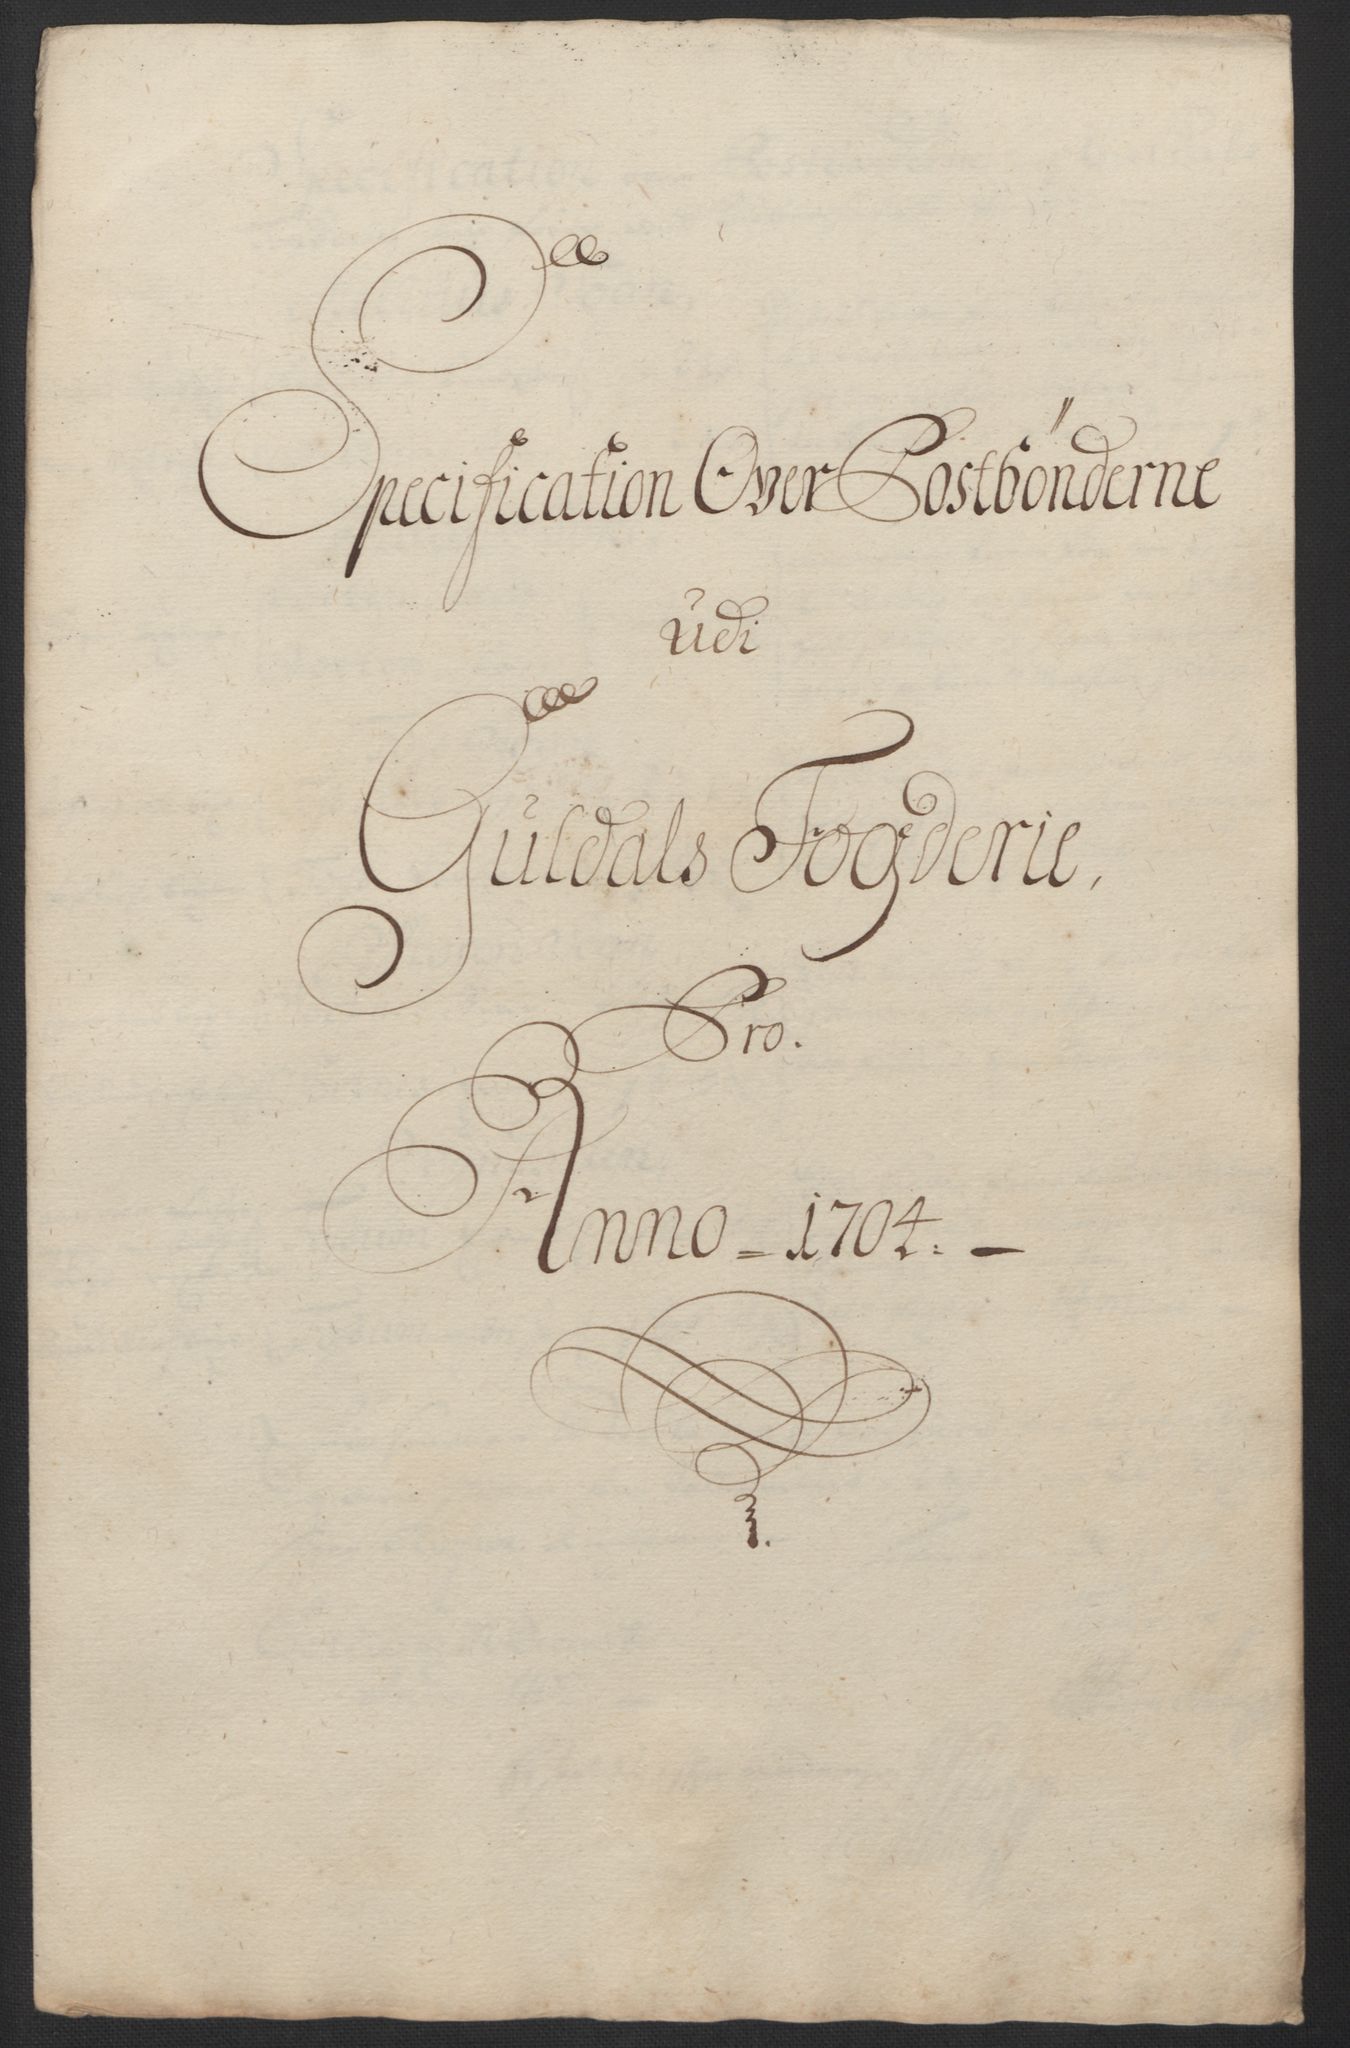 Specification Over Postbönderne
udi
Guldals Fogderie,
Pro.
Anno = 1704. —